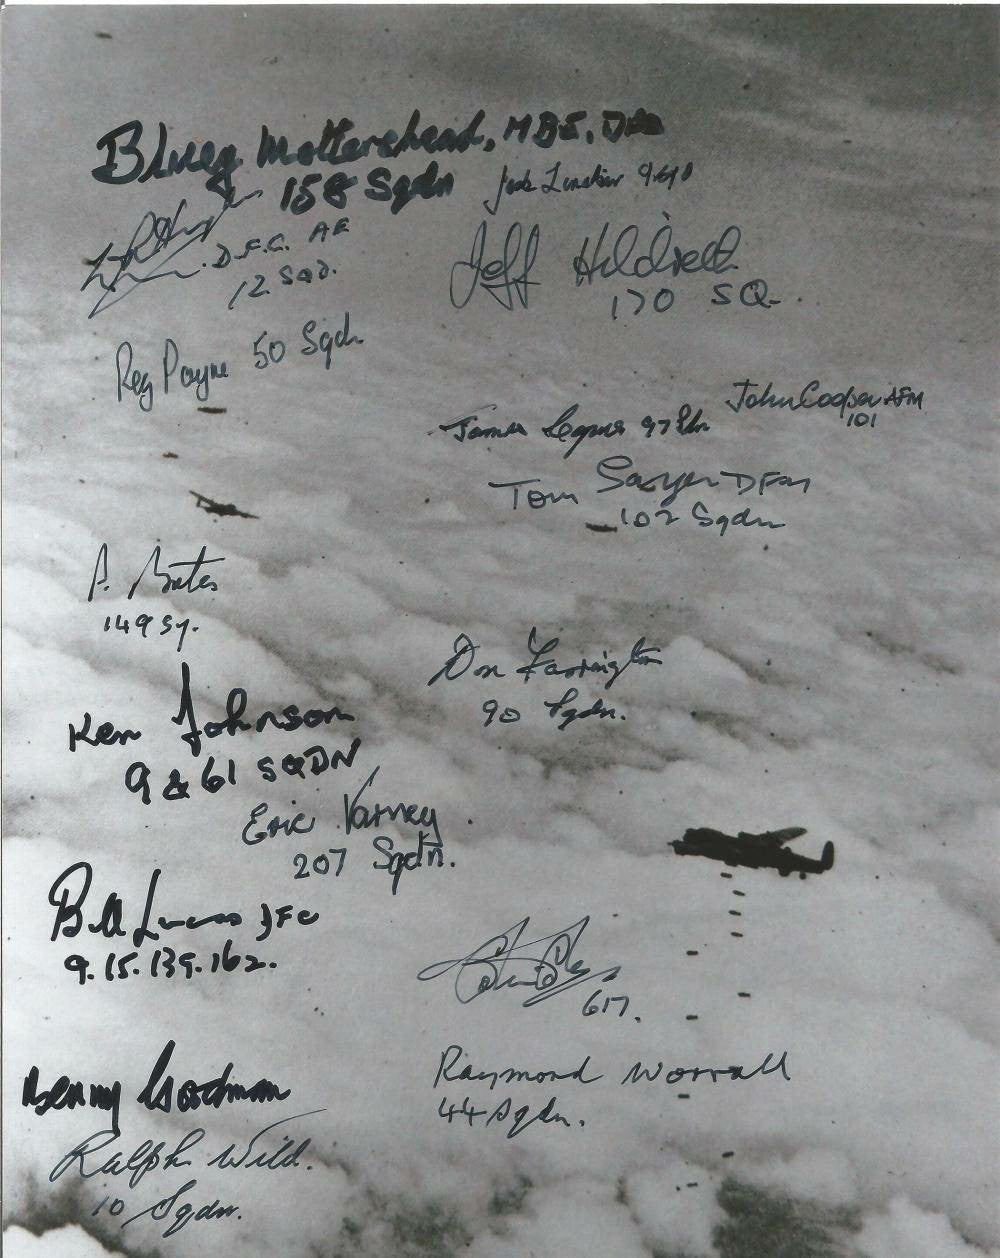 Bluey Mottershead, MBE, DFC
158 Sqdn
D.F.C. AE
12 SQD.
Jack Linaker 9.
Jeff Hildreth
170 SQ.
Reg Payne 50 Sqdn.
John Cooper AFM
101
James 97 Sdn
Tom Sawyer DFM
102 Sqdn
Bates
149 Sq.
Don Farrington
90 Sqdn.
Ken Johnson
9 & 61 SQDN
Eric Varney
207 Sqdn.
Bill Lucas DFC
9.15.139.162.
617.
Benny Goodman
Raymond Worrall
44 Sqdn.
Ralph Wild.
10 Sqdn.